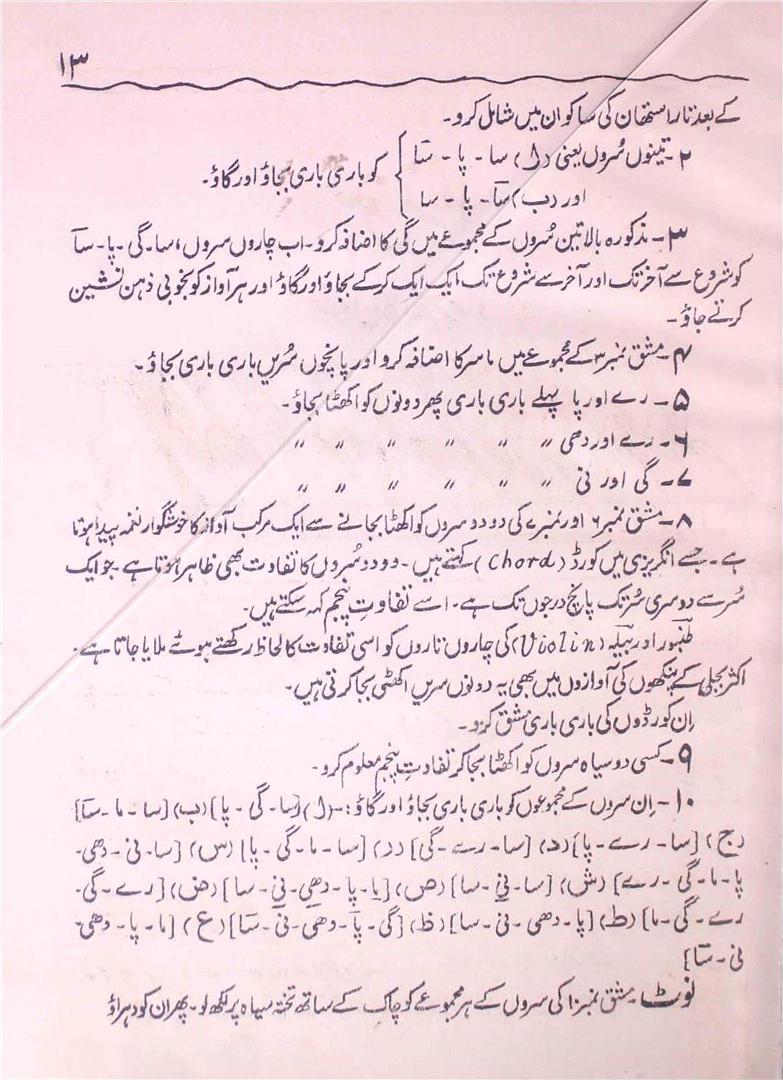 ۱۳
کے بعد تار استھان کی سا کو ان میں شامل کرو۔
۲۔ تینوں سُروں یعنی (ا) سا - پا - سآ
اور (ب) سآ - پا - سا
کو باری باری بجاؤ اور گاؤ۔
۳۔ مذکورہ بالا تین سُروں کے مجموعے میں گی کا اضافہ کرو۔ اب چاروں سروں، سا۔ گی ۔ پا۔ سآ
کو شروع سے آخر تک اور آخر سے شروع تک ایک ایک کرکے بجاؤ اور گاؤ اور ہر آواز کو بخوبی ذہن نشین
کرتے جاؤ۔
۴۔ مشق نمبر ۳ کے مجموعے میں ما سر کا اضافہ کرو اور پانچوں سُریں باری باری بجاؤ۔
۵۔ رے اور پا پہلے باری باری پھر دونوں کو اکھٹا بجاؤ۔
۶۔ رے اور دھی " " " " " "
۷۔ گی اور نی " " " " " "
۸۔ مشق نمبر ۶ اور نمبر ۷ کی دو دو سروں کو اکھٹا بجانے سے ایک مرکب آواز کا خوشگوار نغمہ پیدا ہوتا
ہے۔ جسے انگریزی میں کورڈ (chord) کہتے ہیں۔ دو دو سُروں کا تفاوت بھی ظاہر ہوتا ہے۔ جو ایک
سُر سے دوسری سُر تک پانچ درجوں تک ہے۔ اسے تفاوتِ پنجم کہہ سکتے ہیں۔
طنبور اور بیلہ (Violin) کی چاروں تاروں کو اسی تفاوت کا لحاظ رکھتے ہوئے ملایا جاتا ہے۔
اکثر بجلی کے پنکھوں کی آوازوں میں بھی یہ دونوں سریں اکھٹی بجا کرتی ہیں۔
اِن کورڈوں کی باری باری مشق کرو۔
۹۔ کسی دو سیاہ سروں کو اکھٹا بجا کر تفاوتِ پنجم معلوم کرو۔
۱۰۔ اِن سروں کے مجموعوں کو باری باری بجاؤ اور گاؤ:۔ (ا) [سا - گی - پا] (ب) [سا - ما - سآ]
(ج) [سا - رے - پا] (د) [سا - رے - گی] (ر) [سا - ما - گی - پا] (س) [سا - نی - دھی -
پا - ما - گی - رے] (ش) [سا - نی - سا] (ص) [پا - پا - دھی - نی - سا] (ض) [رے - گی -
رے - گی - ما] (ط) [پا - دھی - نی - سا] (ظ) [گی - پا - دھی - نی - سآ] (ع) [ما - پا - دھی -
نی - سآ]
نوٹ۔ مشق نمبر ۱۰ کی سروں کے ہر مجموعے کو چاک کے ساتھ تختہ سیاہ پر لکھ لو۔ پھر ان کو دہراؤ